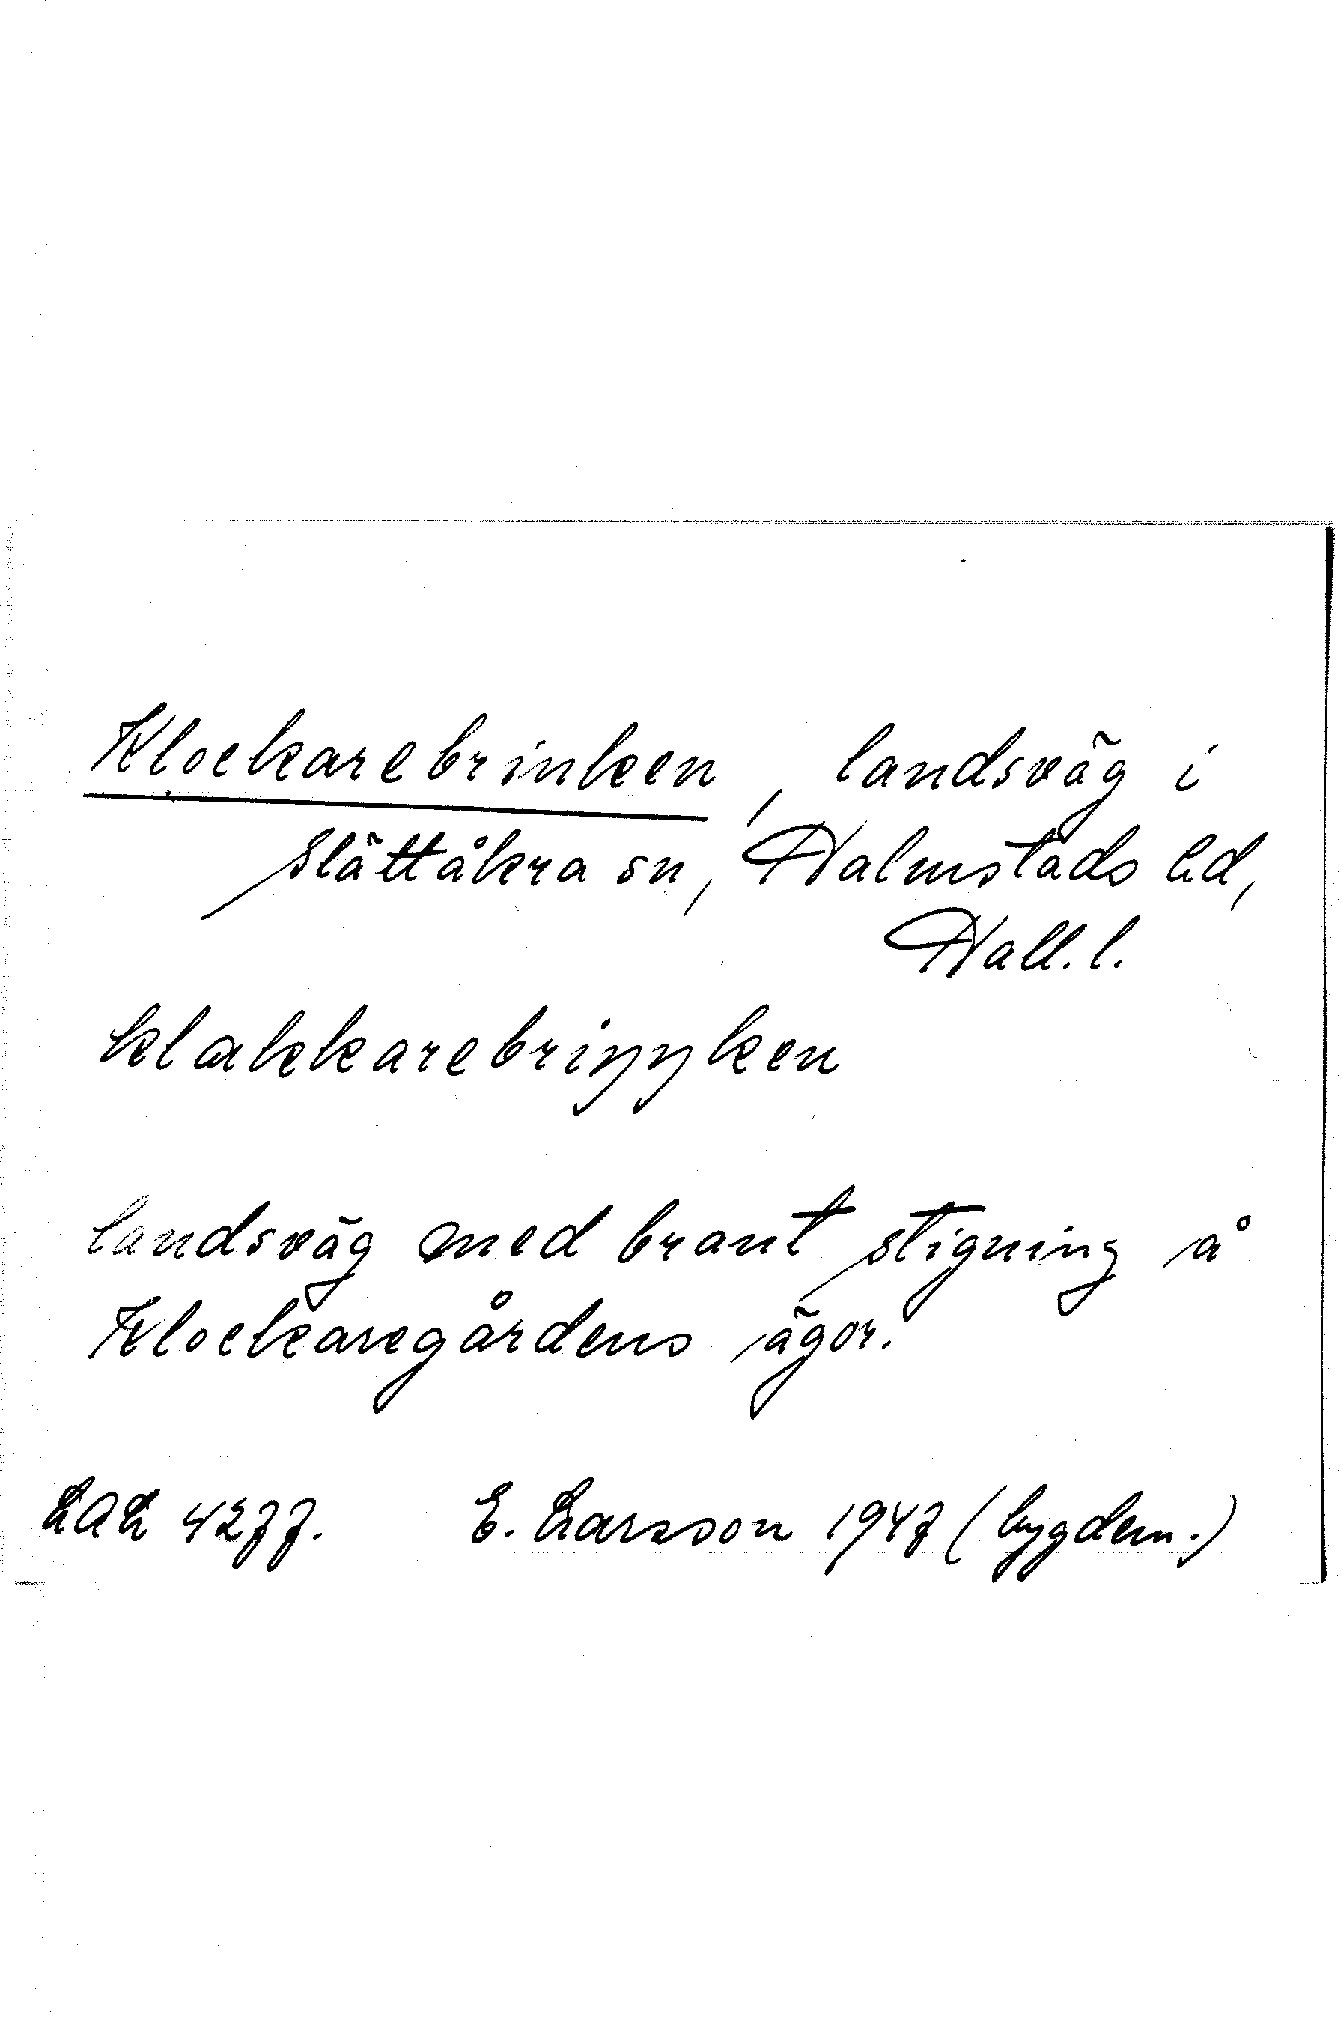 Klockarebrinken, landsväg i
Slättåkra sn, Halmstads hd,
Hall. l.
klakkarebriŋŋken
landsväg med brant stigning å
Klockaregårdens ägor.
LAL 4277. E. Larsson 1947 (bygdem.)